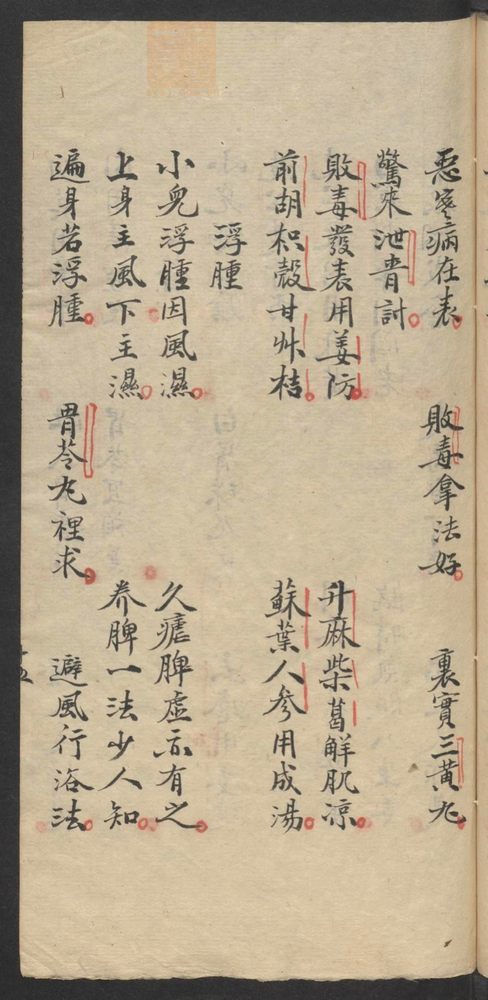 惡寒病在表 敗毒拿法好 裏實三黃丸
驚來泄青討
敗毒發表用姜防 升麻柴葛觧肌凉
前胡枳殼甘艸桔 蘇葉人參用成湯
浮腫
小兒浮腫因風濕 久瘧脾虛亦有之
上身主風下主濕 养脾一法少人知
遍身若浮腫 胃苓丸裡求 避風行浴法